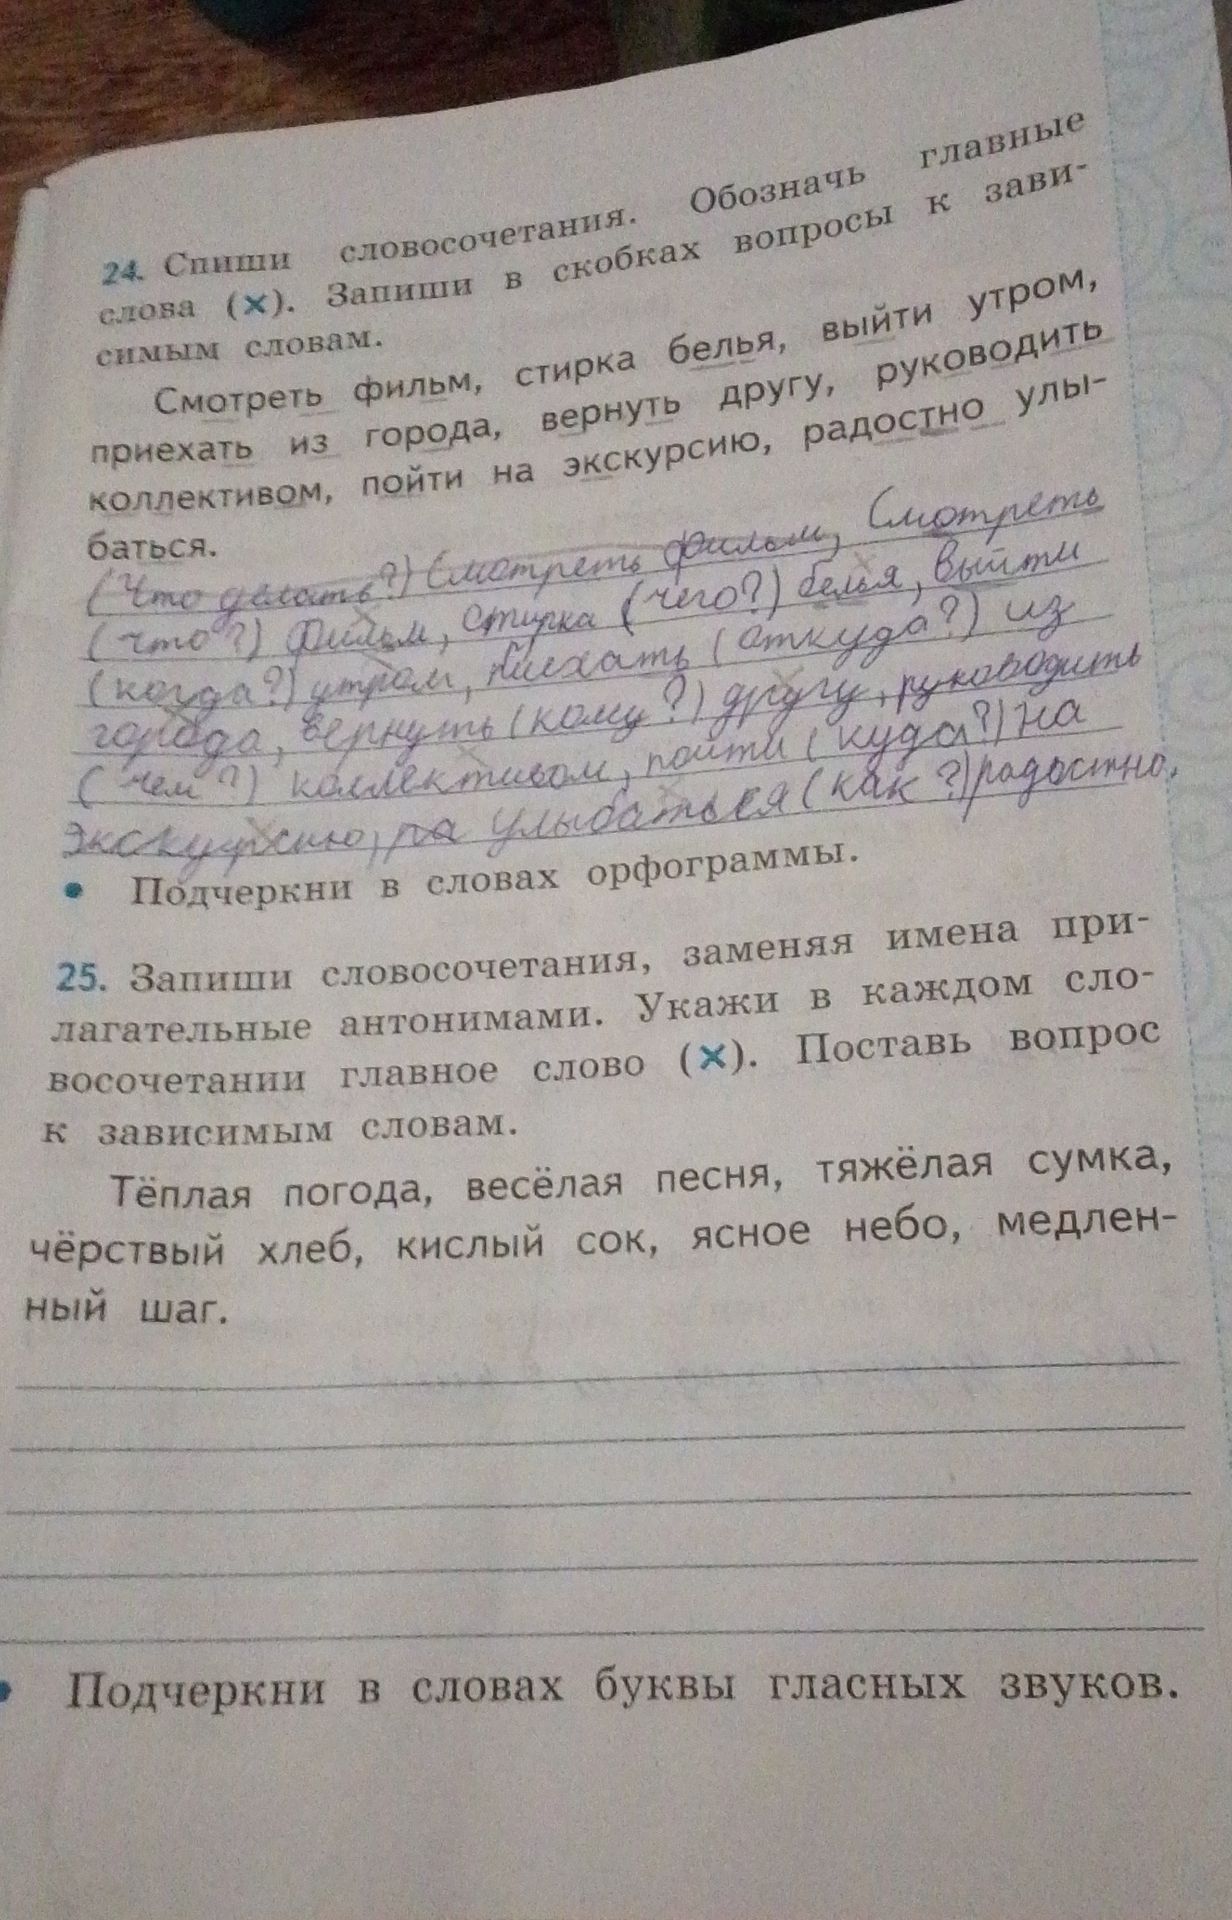 24. Спиши словосочетания. Обозначь главные
слова (×). Запиши в скобках вопросы к зави-
симым словам.
Смотреть фильм, стирка белья, выйти утром,
приехать из города, вернуть другу, руководить
коллективом, пойти на экскурсию, радостно улы-
баться.
(Что делать?) Смотреть фильм, Смотреть
(что?) фильм, стирка (чего?) белья, выйти
(когда?) утром, (откуда?) из
города, вернуть (кому?) другу, руководить
(чем?) коллективом, пойти (куда?) на
экскурсию, ра улыбаться (как?) радостно.
• Подчеркни в словах орфограммы.
25. Запиши словосочетания, заменяя имена при-
лагательные антонимами. Укажи в каждом сло-
восочетании главное слово (×). Поставь вопрос
к зависимым словам.
Тёплая погода, весёлая песня, тяжёлая сумка,
чёрствый хлеб, кислый сок, ясное небо, медлен-
ный шаг.
• Подчеркни в словах буквы гласных звуков.